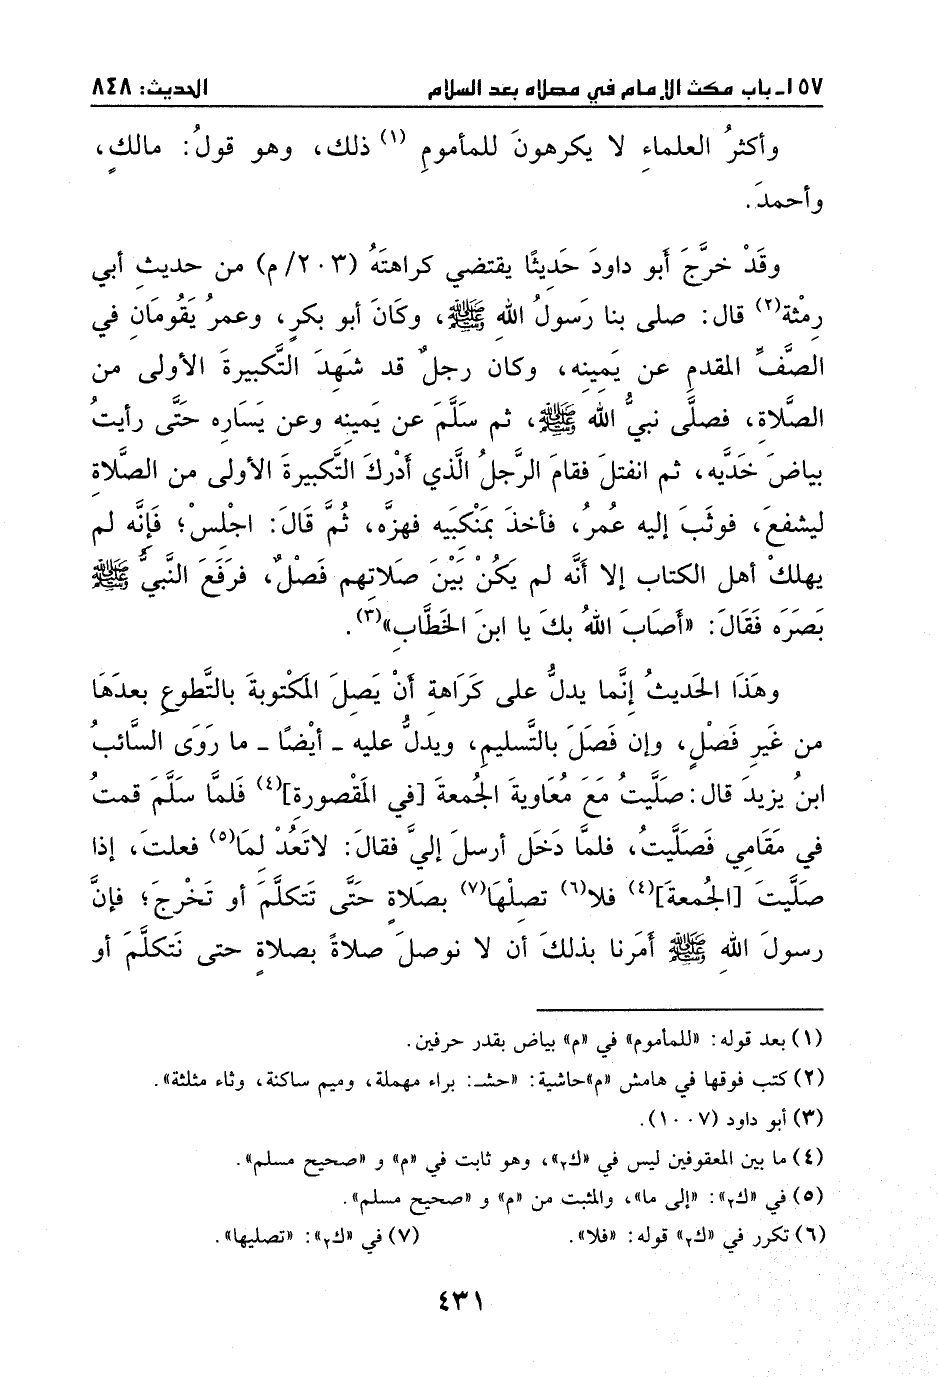 ١٥٧ـ باب مكث الإمام في مصلاه بعد السلام الحديث: ٨٤٨
وأكثرُ العلماءِ لا يكرهونَ للمأمومِ (١) ذلك، وهو قولُ: مالكٍ،
وأحمدَ.
وقَدْ خرَّجَ أَبو داودَ حَديثًا يقتضي كراهتَهُ (٢٠٣/م) من حديثِ أبي
رِمْثة(٢) قال: صلى بنا رَسولُ الله ﷺ، وكَانَ أبو بكرٍ، وعمرُ يَقُومَانِ في
الصَّفِّ المقدمِ عن يَمِينِه، وكان رجلٌ قد شهِدَ التَّكبيرةَ الأولى من
الصَّلاة، فصلَّى نبيُّ الله ﷺ، ثم سلَّمَ عن يَمِينِه وعن يَسَارِه حتَّى رأيتُ
بياضَ خَدَّيه، ثم انفتلَ فقامَ الرَّجلُ الَّذي أَدْركَ التَّكبيرةَ الأولى من الصَّلاةِ
ليشفعَ، فوثَبَ إليه عُمرُ، فأخذَ بمَنْكبَيه فهزَّه، ثُمَّ قَالَ: اجْلِسْ؛ فَإنَّه لم
يهلكْ أهل الكتابِ إلا أنَّه لم يَكُنْ بَيْنَ صَلاتِهم فَصْلٌ، فرَفَعَ النَّبيُّ ﷺ
بَصَرَه فَقَالَ: «أصَابَ اللهُ بكَ يا ابنَ الخَطَّابِ»(٣).
وهَذَا الحَديثُ إنَّما يدلُّ على كَرَاهةِ أنْ يَصِلَ المَكْتوبةَ بالتَّطوعِ بعدَهَا
من غَيرِ فَصْلٍ، وإن فَصَلَ بالتَّسليمِ، ويدلُّ عليه ـ أيْضًا ـ ما رَوَى السَّائبُ
ابنُ يزيدَ قال: صَلَّيتُ مَعَ مُعَاويةَ الجُمعةَ [في المَقْصورةِ](٤) فَلمَّا سلَّمَ قمتُ
في مَقَامِي فَصَلَّيتُ، فلمَّا دَخَل أرسلَ إليَّ فقالَ: لاتَعُدْ لمَا(٥) فعلتَ، إذا
صَلَّيتَ [الجُمعةَ](٤) فلا(٦) تصلْهَا(٧) بصَلاةٍ حتَّى تَتكلَّمَ أو تَخْرجَ؛ فإنَّ
رسولَ اللهِ ﷺ أمَرنا بذلكَ أن لا نوصلَ صلاةً بصلاةٍ حتى نَتكلَّمَ أو
(١) بعد قوله: «للمأموم» في «م» بياض بقدر حرفين.
(٢) كتب فوقها في هامش «م»حاشية: «حشـ: براء مهملة، وميم ساكنة، وثاء مثلثة».
(٣) أبو داود (١٠٠٧).
(٤) ما بين المعقوفين ليس في «ك٢»، وهو ثابت في «م» و «صحيح مسلم».
(٥) في «ك٢»: «إلى ما»، والمثبت من «م» و «صحيح مسلم».
(٦) تكرر في «ك٢» قوله: «فلا». (٧) في «ك٢»: «تصليها».
٤٣١